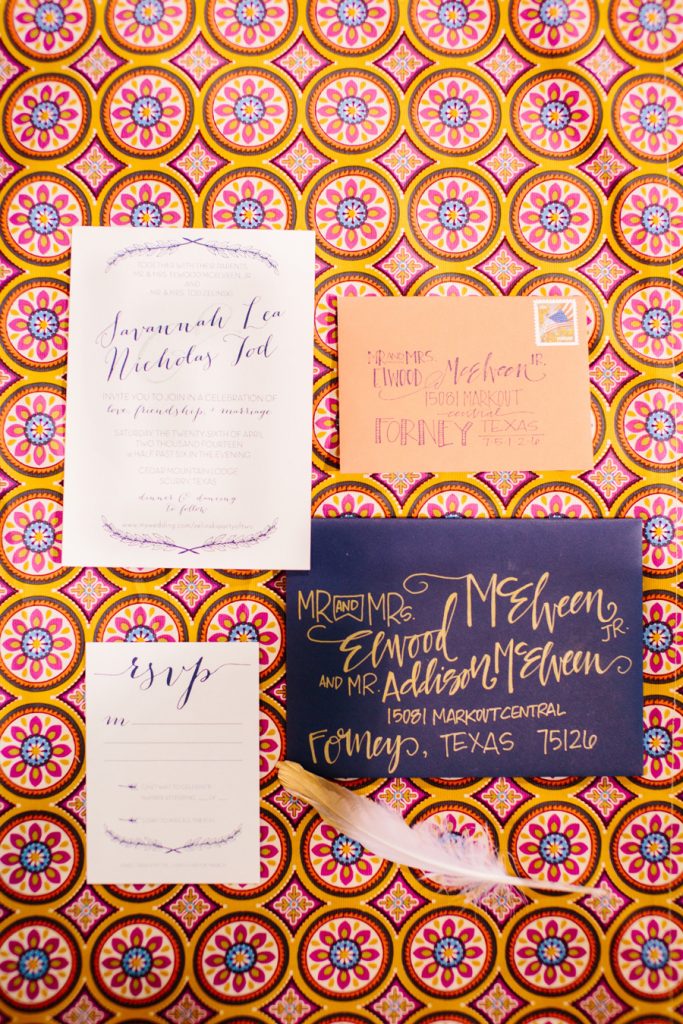 TOGETHER WITH THEIR PARENTS
MR. & MRS. ELWOOD MCELVEEN JR.
AND
MR. & MRS. TOD ZELINSKI
Savannah Lea
&
Nicholas Tod
INVITE YOU TO JOIN IN A CELEBRATION OF
love, friendship, + marriage
SATURDAY THE TWENTY SIXTH OF APRIL
TWO THOUSAND FOURTEEN
@ HALF PAST SIX IN THE EVENING
CEDAR MOUNTAIN LODGE
SCURRY, TEXAS
dinner & dancing
to follow
MR AND MRS.
ELWOOD McElveen JR.
15081 MARKOUT
central
FORNEY TEXAS
75126
MR AND MRS. McElveen JR.
Elwood
AND MR. Addison McElveen
15081 MARKOUT CENTRAL
Forney, TEXAS 75126
rsvp
m